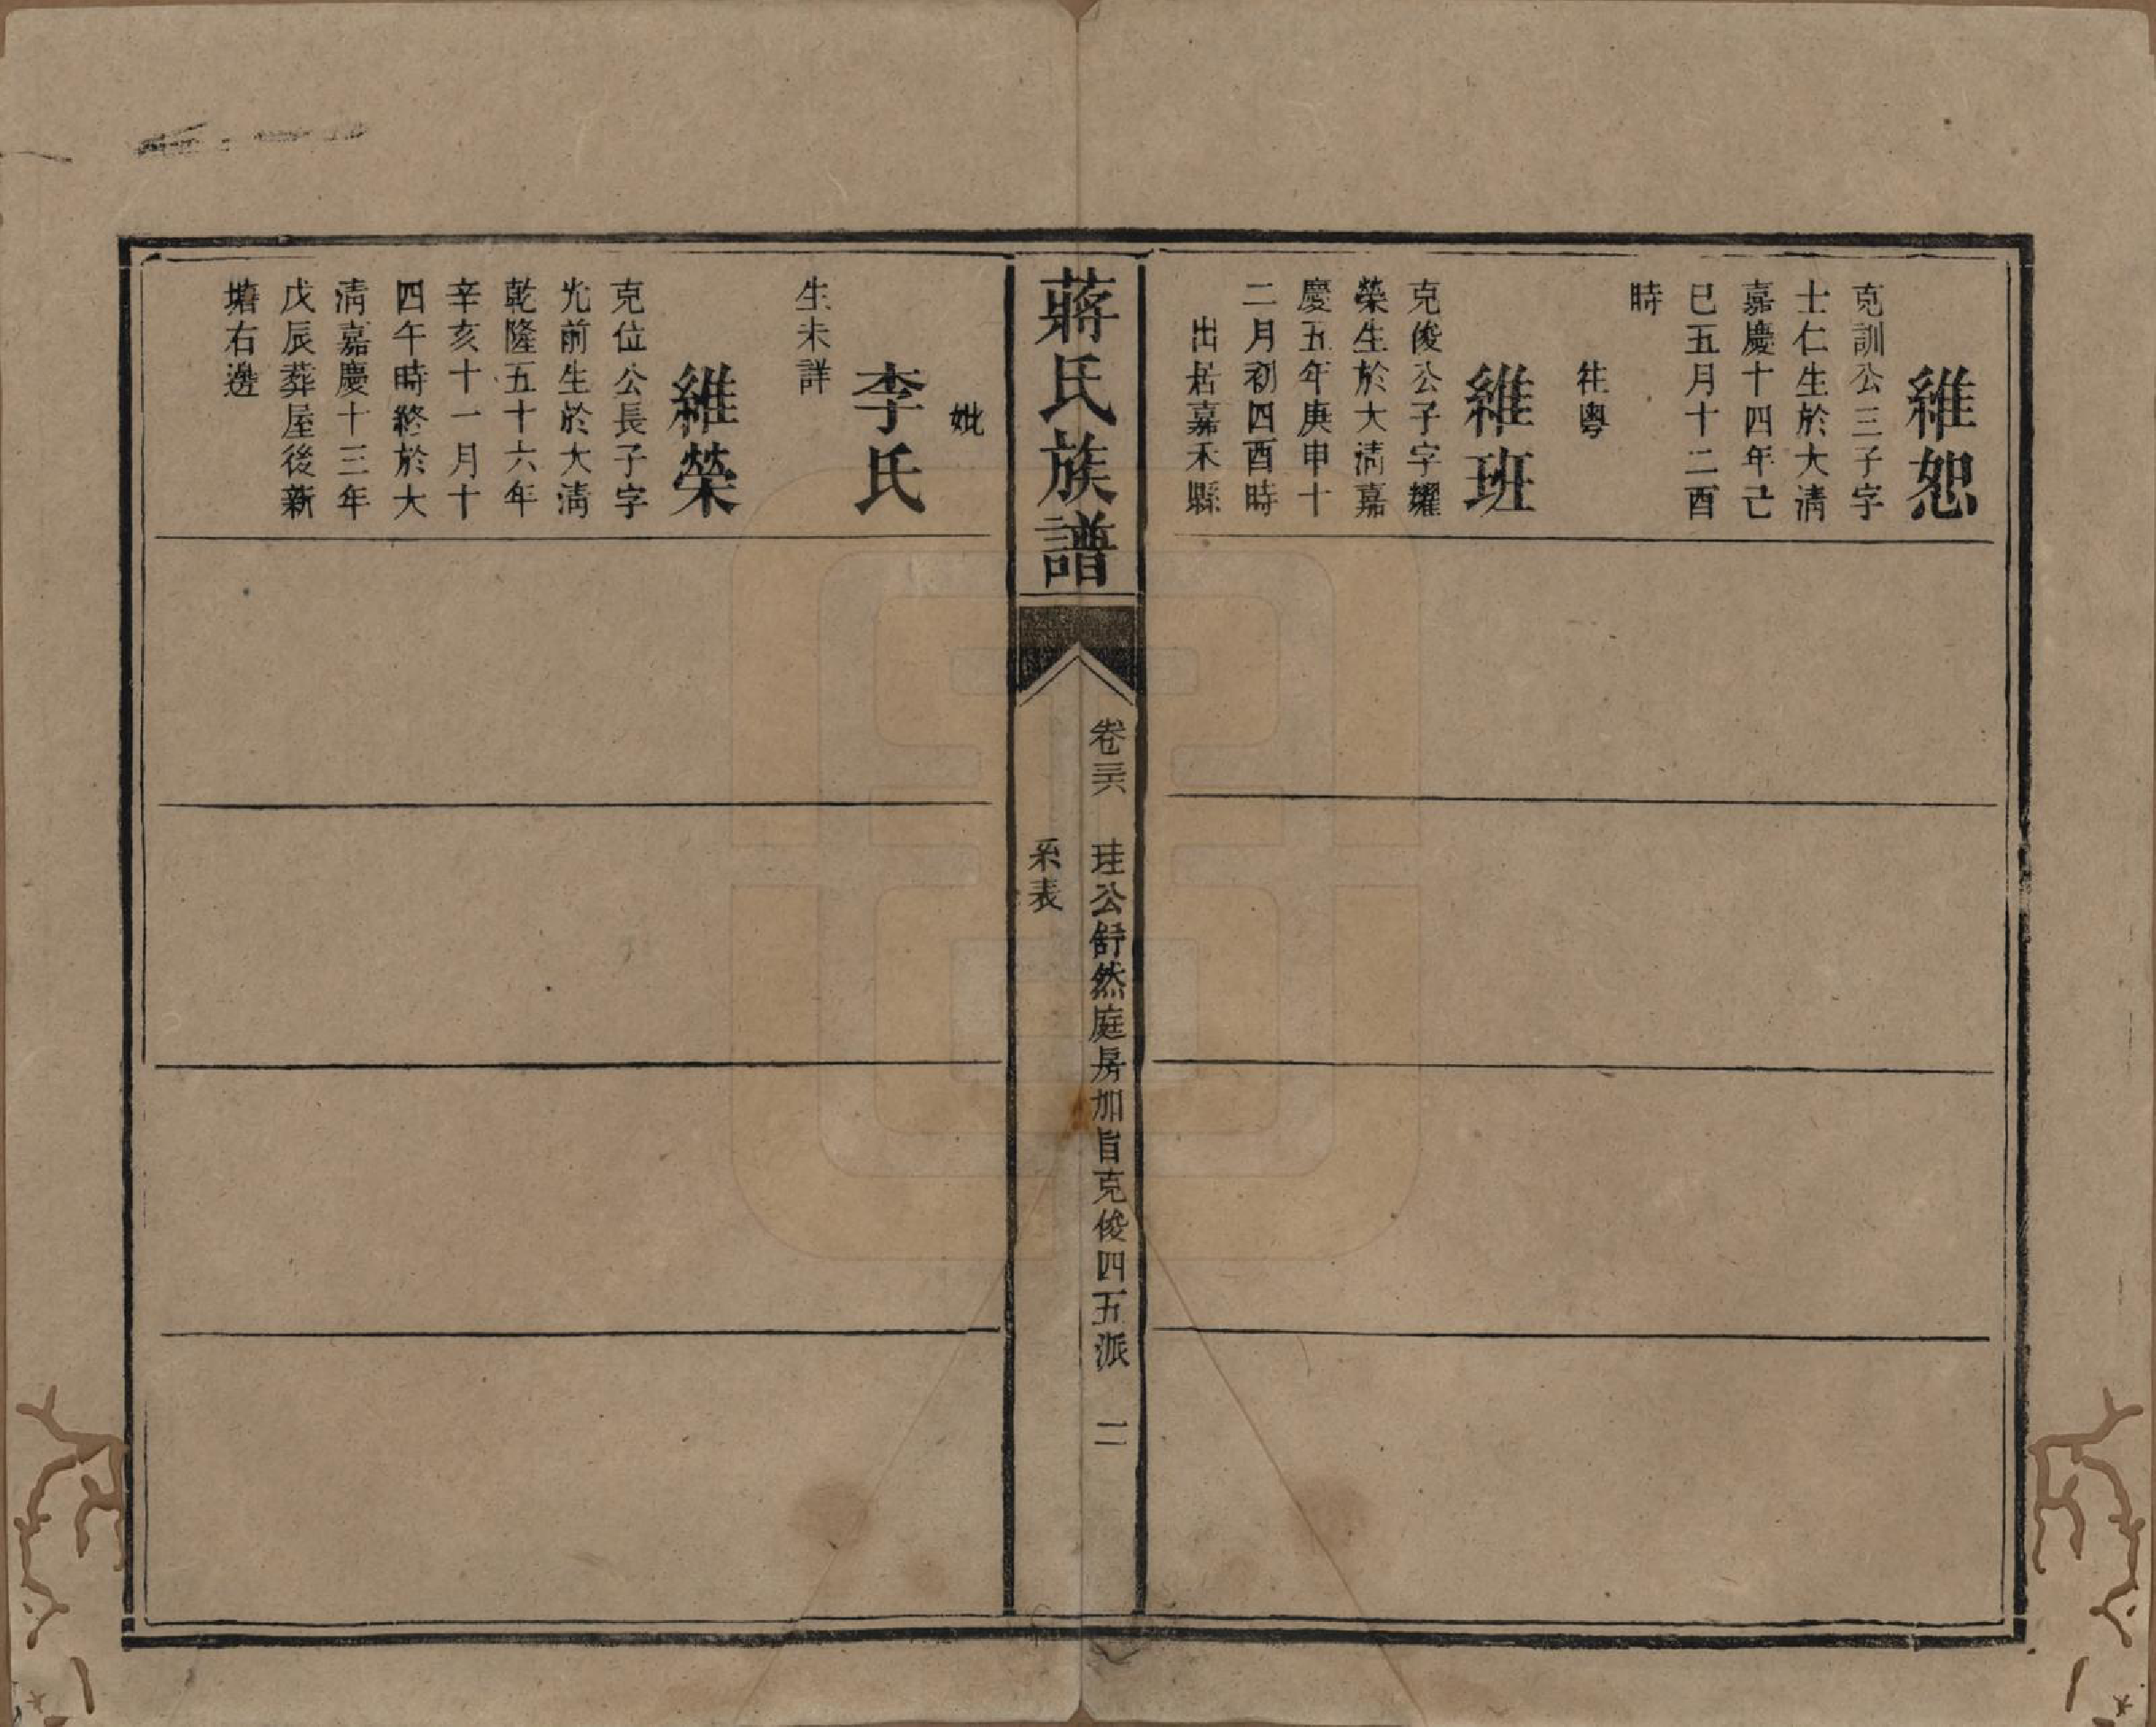 維恕
克訓公三子字
士仁生於大清
嘉慶十四年己
巳五月十二酉
時
往粵
維班
克俊公子字耀
榮生於大清嘉
慶五年庚申十
二月初四酉時
出居嘉禾縣
蔣氏族譜
卷三六　珪公舒然庭房加旨克俊四五派　二
系表
妣
李氏
生未詳
維榮
克位公長子字
光前生於大清
乾隆五十六年
辛亥十一月十
四午時終於大
清嘉慶十三年
戊辰葬屋後新
塘右邊